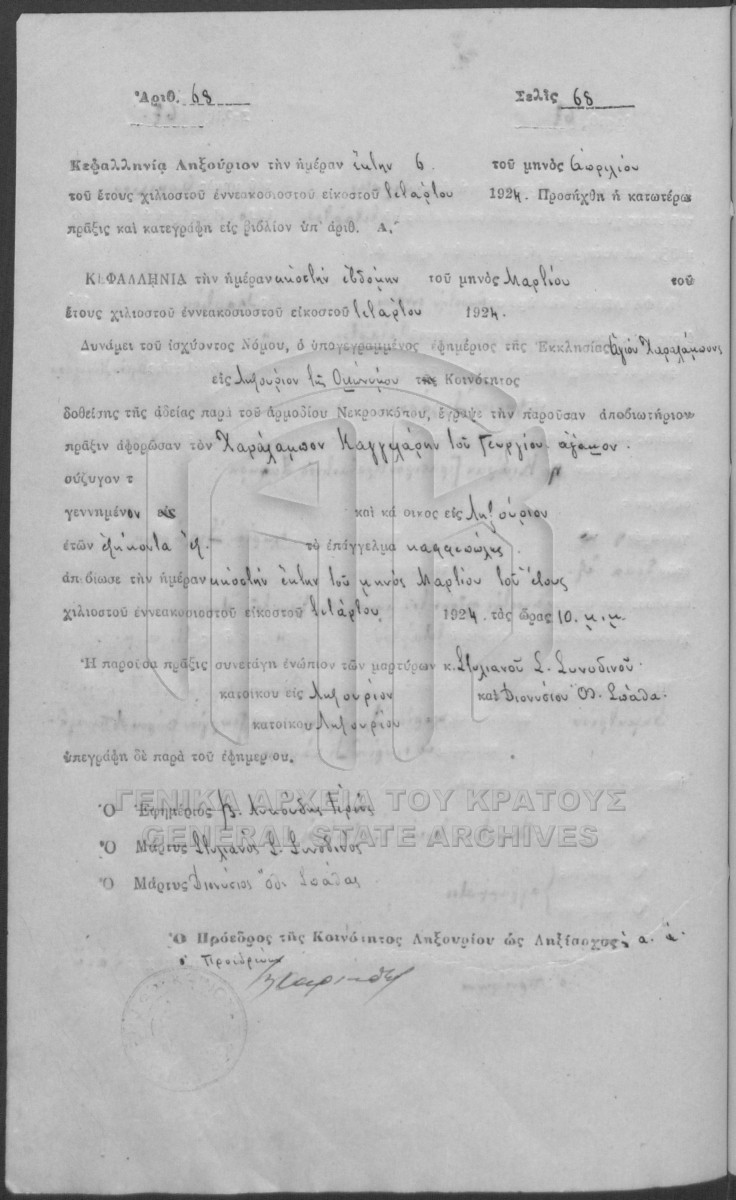 Ἀριθ. 68 Σελὶς 68
Κεφαλληνία Ληξούριον τὴν ἡμέραν ἕκτην 6 τοῦ μηνὸς Ἀπριλίου
τοῦ ἔτους χιλιοστοῦ ἐννεακοσιοστοῦ εἰκοστοῦ τετάρτου 1924. Προσήχθη ἡ κατωτέρω
πρᾶξις καὶ κατεγράφη εἰς βιβλίον ὑπ' ἀριθ. Α.
ΚΕΦΑΛΛΗΝΙΑ τὴν ἡμέραν εἰκοστὴν ἑβδόμην τοῦ μηνὸς Μαρτίου τοῦ
ἔτους χιλιοστοῦ ἐννεακοσιοστοῦ εἰκοστοῦ τετάρτου 1924.
Δυνάμει τοῦ ἰσχύοντος Νόμου, ὁ ὑπογεγραμμένος ἐφημέριος τῆς Ἐκκλησίας Ἁγίου Χαραλάμπους
εἰς Ληξούριον τῆς Ὁμωνύμου Κοινότητος
δοθείσης τῆς ἀδείας παρὰ τοῦ ἁρμοδίου Νεκροσκόπου, ἔγραψε τὴν παροῦσαν ἀποβιωτήριον
πρᾶξιν ἀφορῶσαν τὸν Χαράλαμπον Καγγελάρην τοῦ Γεωργίου ἄγαμον.
σύζυγον τ
γεννημένον εἰς καὶ κάτοικος εἰς Ληξούριον
ἐτῶν ἑξήκοντα ἕξ. τὸ ἐπάγγελμα καφφεπώλης.
ἀπεβίωσε τὴν ἡμέραν εἰκοστὴν ἕκτην τοῦ μηνὸς Μαρτίου τοῦ ἔτους
χιλιοστοῦ ἐννεακοσιοστοῦ εἰκοστοῦ τετάρτου 1924 τὰς ὥρας 10. π.μ.
Ἡ παροῦσα πρᾶξις συνετάγη ἐνώπιον τῶν μαρτύρων κ. Στυλιανοῦ Σ. Συνοδινοῦ
κατοίκου εἰς Ληξούριον καὶ Διονυσίου Ὀδ. Σπάθα.
κατοίκου Ληξουρίου
ὑπεγράφη δὲ παρὰ τοῦ ἐφημερίου.
ΓΕΝΙΚΑ ΑΡΧΕΙΑ ΤΟΥ ΚΡΑΤΟΥΣ
Ὁ Ἐφημέριος Β. Ἱερεύς
GENERAL STATE ARCHIVES
Ὁ Μάρτυς Στυλιανὸς Σ. Συνοδινός
Ὁ Μάρτυς Διονύσιος Ὀδ. Σπάθας
Ὁ Πρόεδρος τῆς Κοινότητος Ληξουρίου ὡς Ληξίαρχος
ὁ Προεδρεύων